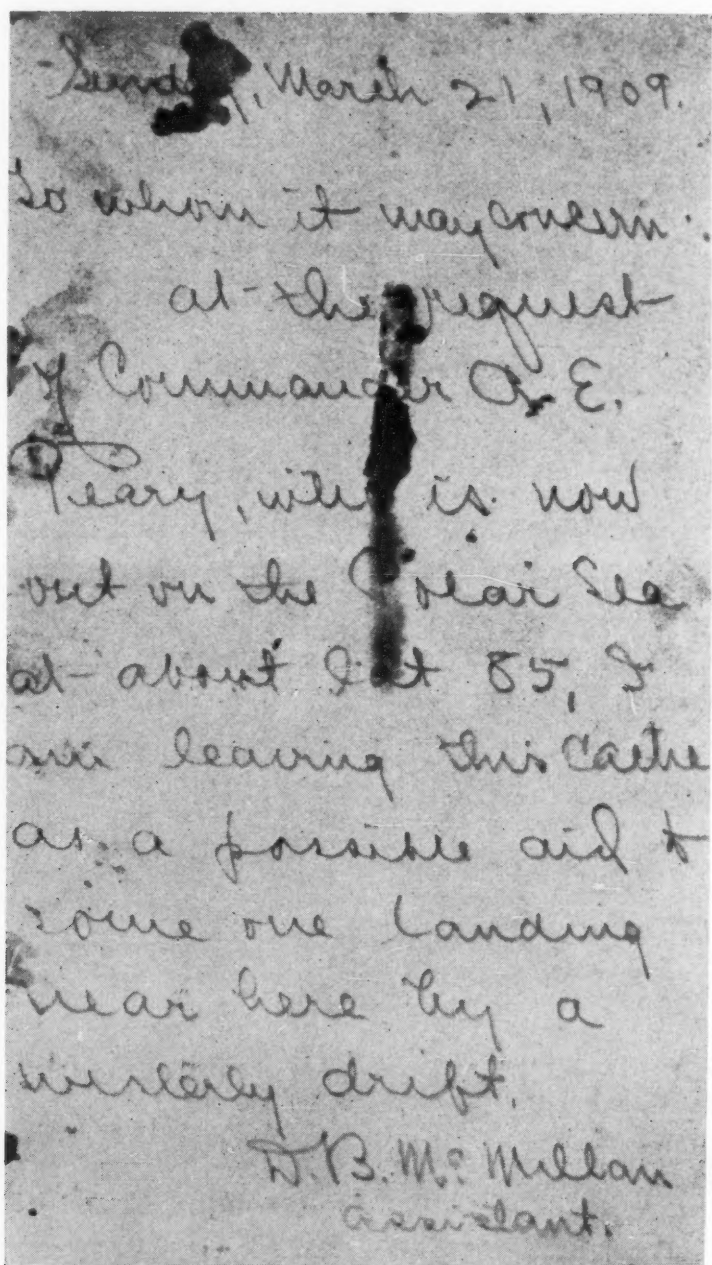 Sunday, March 21, 1909.
To whom it may concern:
at the request
of Commander R. E.
Peary, who is now
out on the Polar Sea
at about lat 85, I
am leaving this cache
as a possible aid to
some one landing
near here by a
westerly drift.
D. B. McMillan
Assistant.